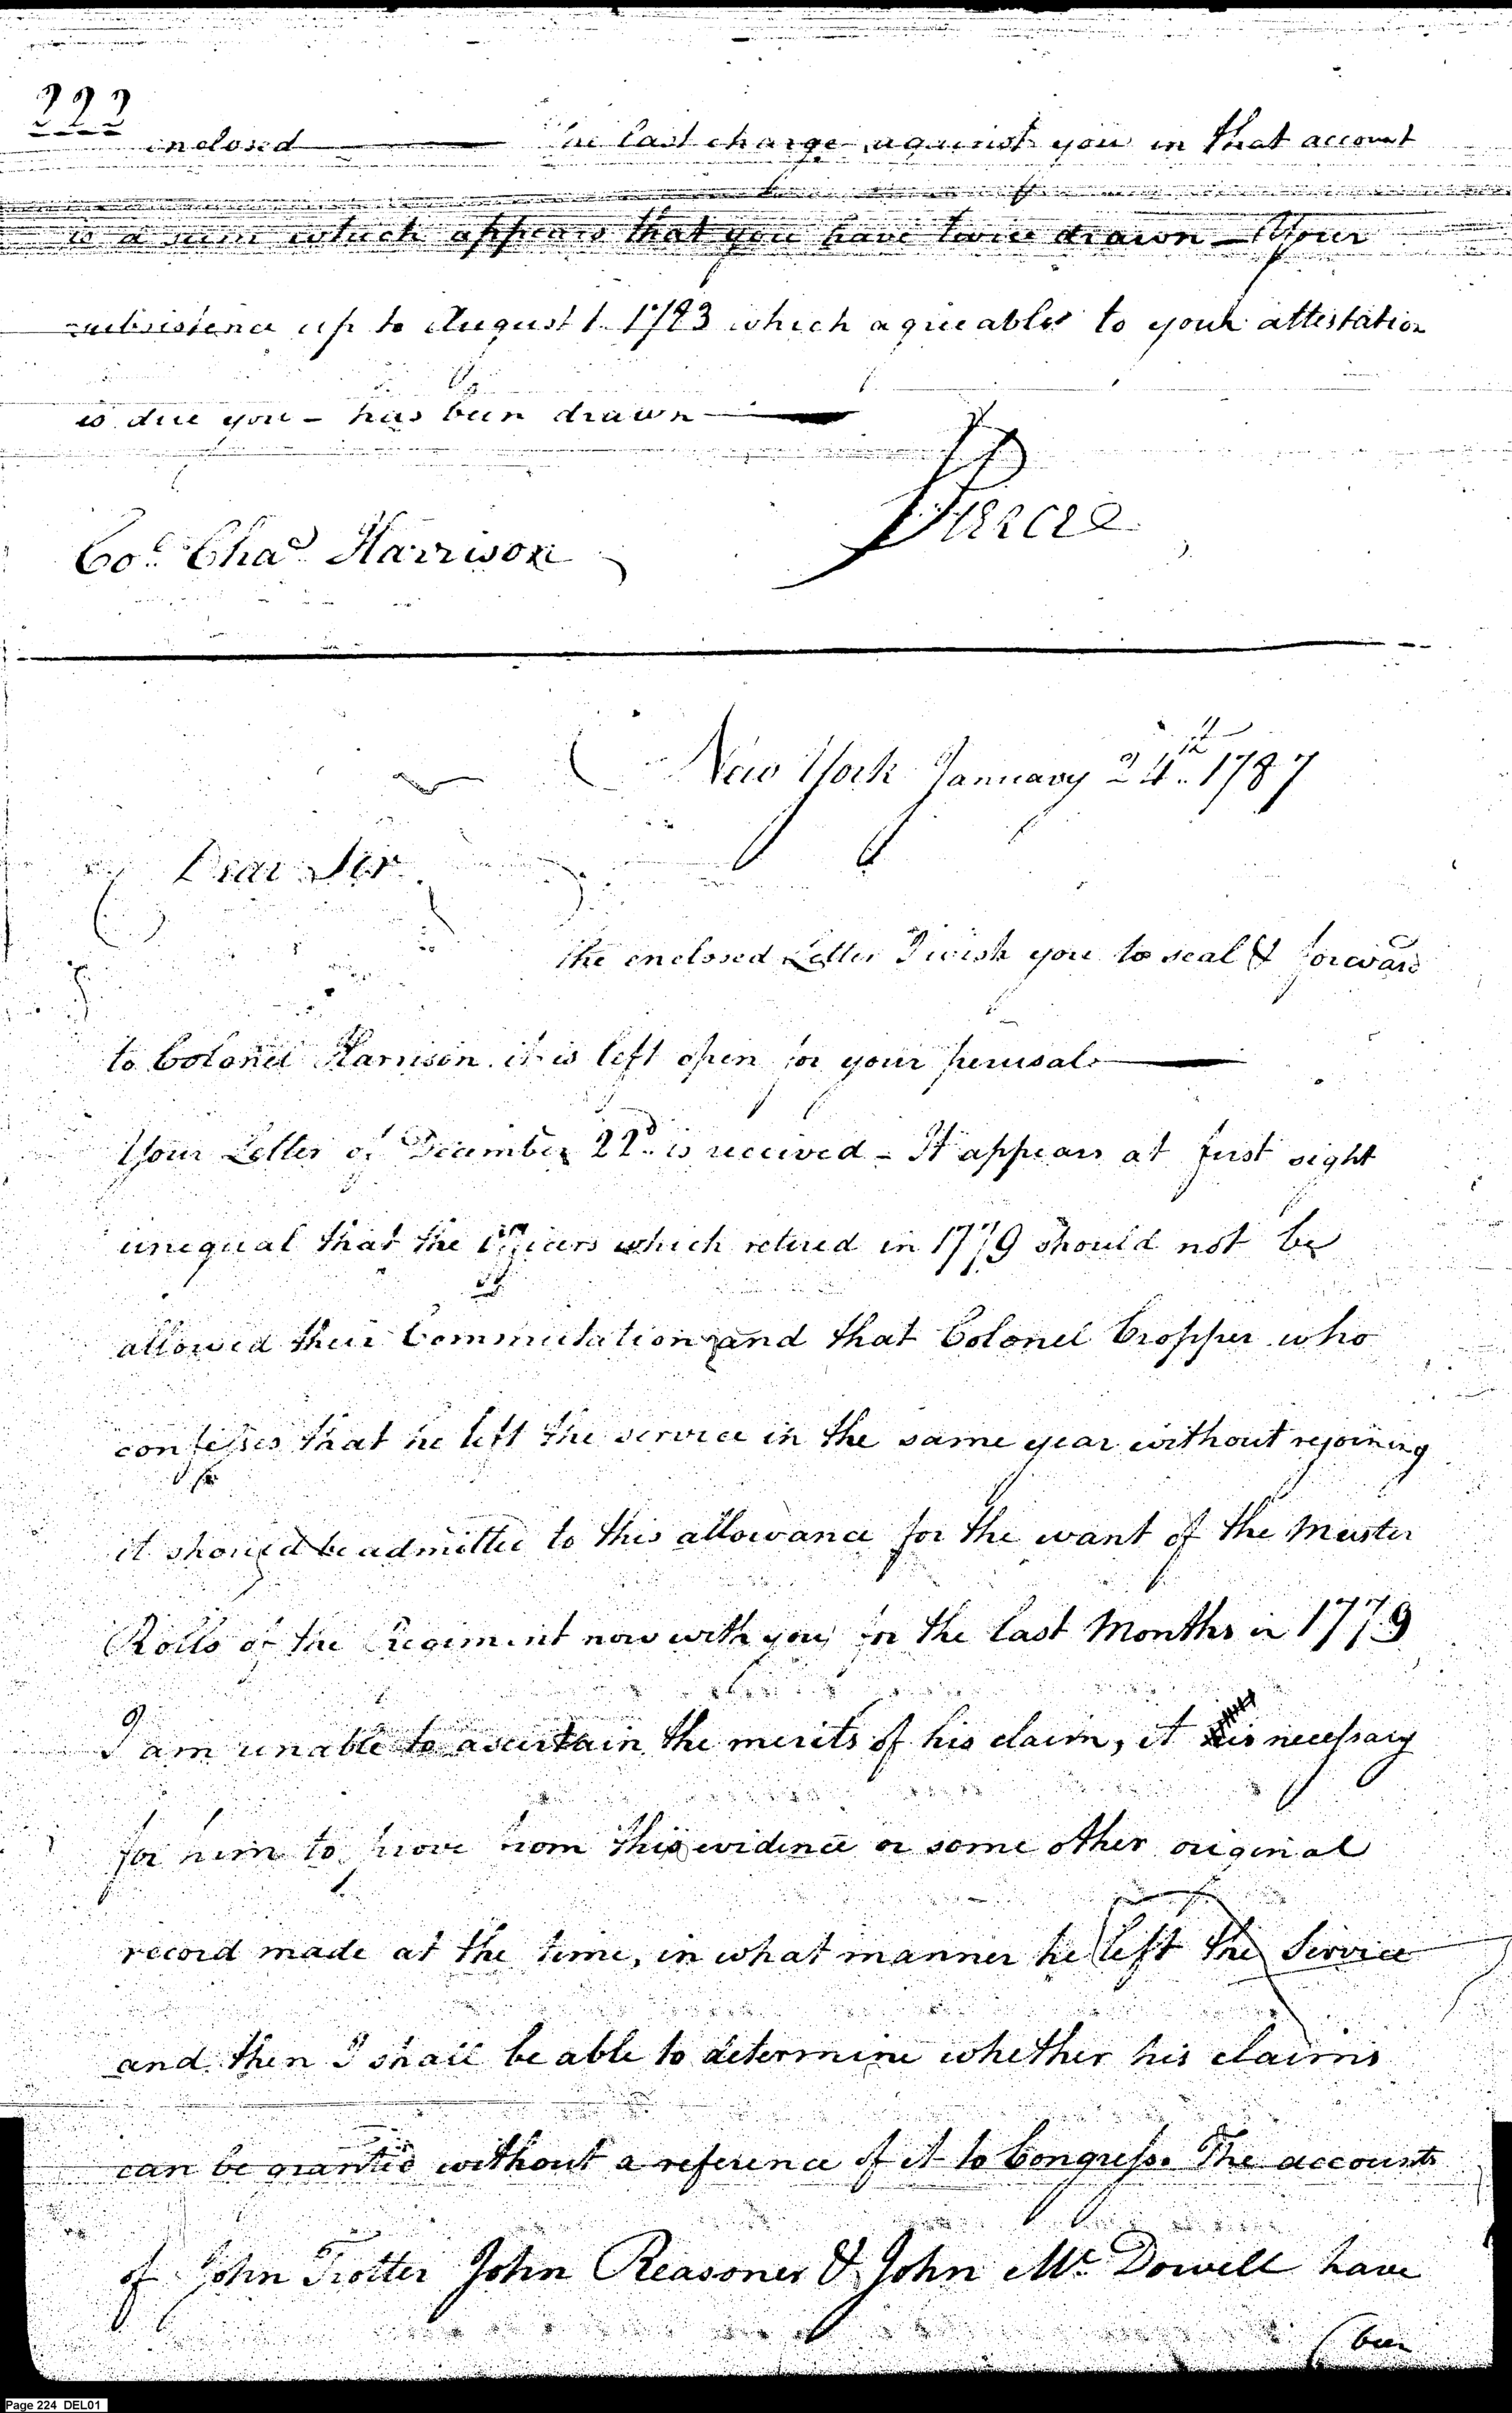 222
inclosed — The last charge against you in that account
is a sum which appears that you have twice drawn — Your
subsistence up to August 1. 1783 which agreeable to your attestation
is due you — has been drawn —
Pierce
Col. Chas. Harrison
New York January 24th 1787
Dear Sir
the enclosed Letter I wish you to seal & forward
to Colonel Harrison. it is left open for your perusal —
Your Letter of December 22d. is received — It appears at first sight
unequal that the Officers which retired in 1779 should not be
allowed their Commutation and that Colonel Cropper who
confesses that he left the service in the same year without rejoining
it should be admitted to this allowance for the want of the Muster
Rolls of the Regiment now with you for the last Months in 1779
I am unable to ascertain the merits of his claim, it is necessary
for him to prove from this evidence or some other original
record made at the time, in what manner he left the Service
and then I shall be able to determine whether his claims
can be granted without a reference of it to Congress. The accounts
of John Trotter John Reasoner & John Mc. Dowell have
(been
Page 224 DEL01